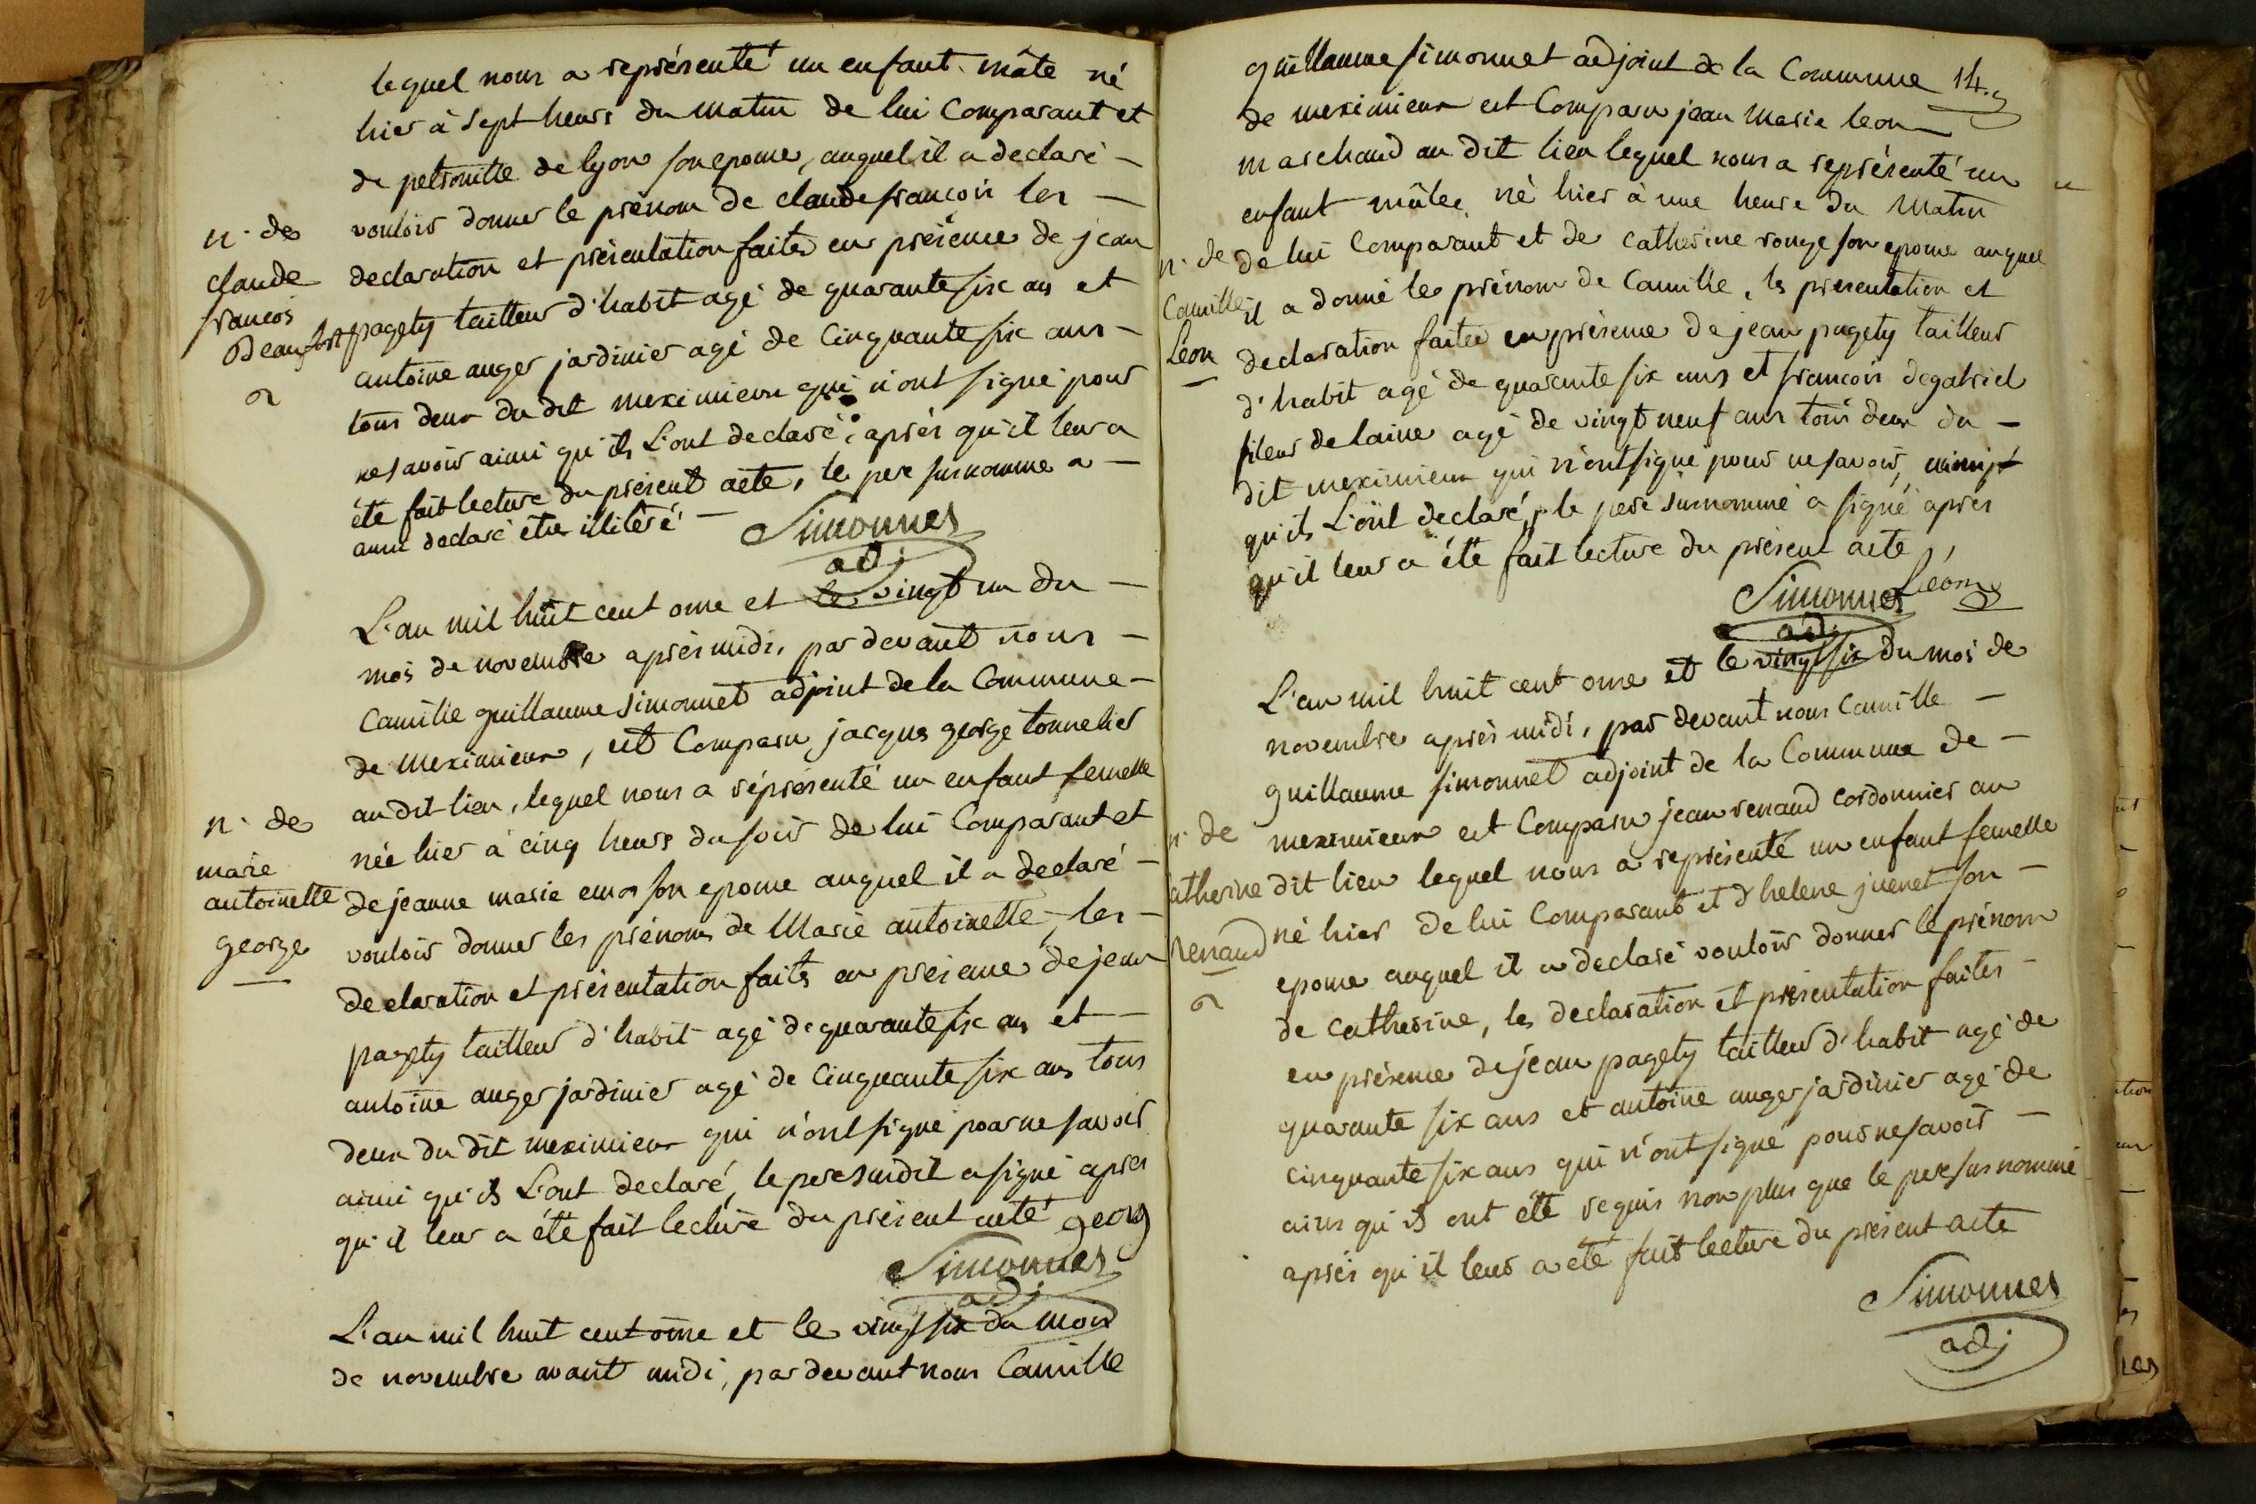 lequel nous a représenté un enfant mâle né
hier à sept heurs du matin de lui Comparant et
de petronille de lyon son epouse, auquel il a declaré –
n. de vouloir donner le prénom de claude françois les –
claude declaration et présentation faites en présence de jean
françois
Beaufort pagety tailleur d'habit agé de quarante six ans et
antoine auger jardinier agé de Cinquante six ans –
tous deux du dit meximieux qui n'ont signé pour
ne savoir ainsi qu'ils L'ont declaré, après qu'il leur a
été fait lecture du présent acte, le pere surnommé a –
aussi declaré être illiteré –
Simonnet
adj
L'an mil huit cent onze et le vingt un du –
mois de novembre après midi, par devant nous –
Camille guillaume simonnet adjoint de la Commune –
de meximieux, est Comparu jacques george tonnelier
au dit lieu, lequel nous a réprésenté un enfant femelle
n. de née hier à cinq heurs du soir de lui Comparant et
marie
antoinette de jeanne marie son epouse auquel il a declaré –
george vouloir donner les prénoms de Marie antoinette, les –
declaration et présentation faits en présence de jean
pagety tailleur d'habit agé de quarante six ans et –
antoine auger jardinier agé de Cinquante six ans tous
deux du dit meximieux qui n'ont signé pour ne savoir
ainsi qu'ils L'ont declaré, le pere susdit a signé après
qu'il leur a été fait lecture du présent acte georg
Simonnet
adj
L'an mil huit cent onze et le vingt six du mois
de novembre avant midi, par devant nous Camille
guillaume simonnet adjoint de la Commune 14.
de meximieux est Comparu jean Marie leon –
marchand au dit lieu lequel nous a représenté un
enfant mâle, né hier à une heure du Matin
n. de de lui Comparant et de catherine rouge son epouse auquel
Camille il a donné le prénom de Camille, les présentation et
Léon declaration faites en présence de jean pagety tailleur
d'habit agé de quarante six ans et francois degabriel
fileur de laine agé de vingt neuf ans tous deux du –
dit meximieux qui n'ont signé pour ne savoir, ainsi
qu'ils L'ont declaré, le pere surnommé a signé après
qu'il leur a été fait lecture du présent acte,
Simonnet Léon
adj
L'an mil huit cent onze et le vingt six du mois de
novembre après midi, par devant nous Camille –
guillaume simonnet adjoint de la Commune de –
n. de meximieux est Comparu jean renaud cordonnier au
atherine dit lieu lequel nous a représenté un enfant femelle
né hier de lui Comparant et d'helene juenet son –
renaud epouse auquel il a declaré vouloir donner le prénom
de catherine, les declaration et présentation faites –
en présence de jean pagety tailleur d'habit agé de
quarante six ans et antoine auger jardinier agé de
cinquante six ans qui n'ont signé pour ne savoir –
ains qu'ils ont été requis non plus que le pere surnommé
après qu'il leur a été fait lecture du présent acte
Simonnet
adj